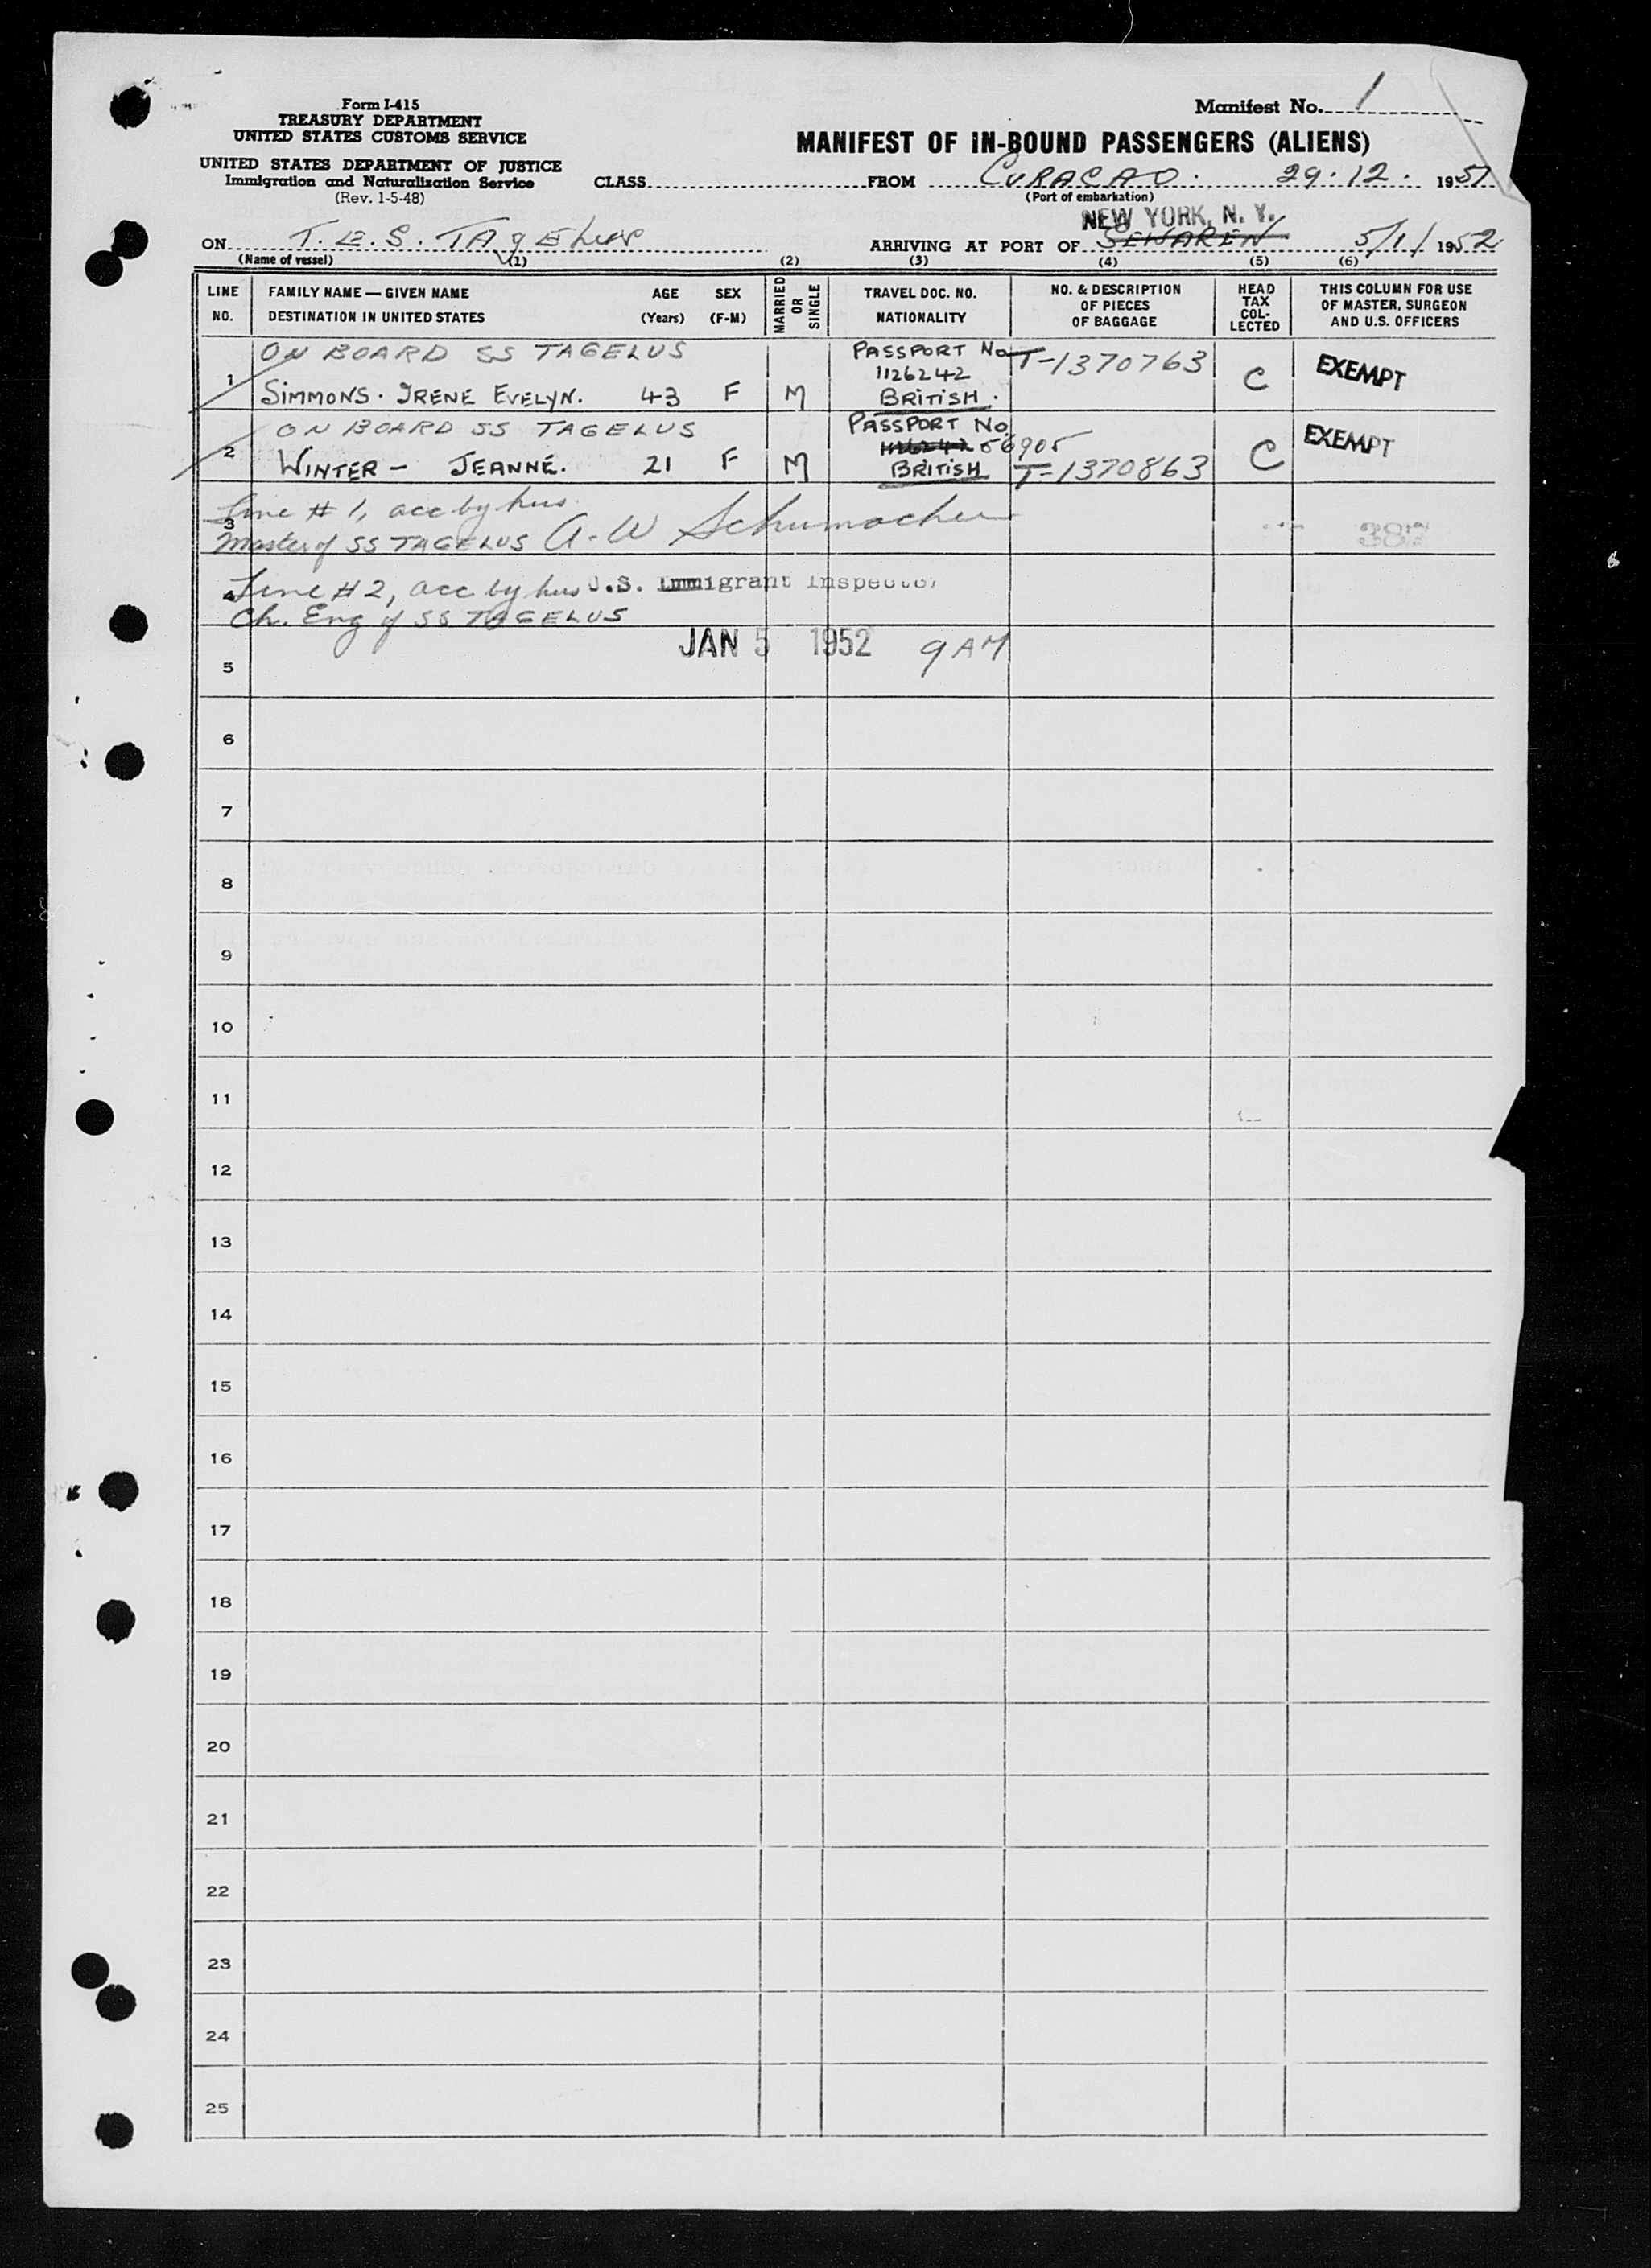 Form I-415
TREASURY DEPARTMENT
UNITED STATES CUSTOMS SERVICE
UNITED STATES DEPARTMENT OF JUSTICE
Immigration and Naturalization Service
(Rev. 1-5-48)
Manifest No. 1
MANIFEST OF IN-BOUND PASSENGERS (ALIENS)
CLASS FROM CURACAO. 29.12. 1951
(Port of embarkation)
NEW YORK, N. Y.
ON T.E.S. TAGELUS ARRIVING AT PORT OF SEWAREN 5/1/1952
(Name of vessel) (1) (2) (3) (4) (5) (6)
LINE NO.
FAMILY NAME — GIVEN NAME AGE SEX
DESTINATION IN UNITED STATES (Years) (F-M)
MARRIED OR SINGLE
TRAVEL DOC. NO.
NATIONALITY
NO. & DESCRIPTION
OF PIECES
OF BAGGAGE
HEAD
TAX
COL-
LECTED
THIS COLUMN FOR USE
OF MASTER, SURGEON
AND U.S. OFFICERS
ON BOARD SS TAGELUS PASSPORT No T-1370763
1 1126242 C EXEMPT
SIMMONS. IRENE EVELYN. 43 F M BRITISH.
ON BOARD SS TAGELUS PASSPORT No
2 1126242 56905 C EXEMPT
WINTER - JEANNE. 21 F M BRITISH T-1370863
Line # 1, acc by hus.
3
Master of SS TAGELUS A. W Schumacher
4 Line # 2, acc by hus U.S. Immigrant Inspector
Ch. Eng of SS TAGELUS
JAN 5 1952 9 AM
5
6
7
8
9
10
11
12
13
14
15
16
17
18
19
20
21
22
23
24
25